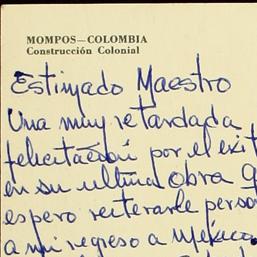 MOMPOS—COLOMBIA
Construcción Colonial
Estimado Maestro
Una muy retardada
felicitación por el exit
en su ultima obra q
espero reiterarle perso
a mi regreso a México.